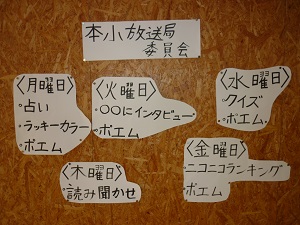 本小放送局
委員会
〈月曜日〉
・占い
・ラッキーカラー
・ポエム
〈火曜日〉
・〇〇にインタビュー
・ポエム
〈水曜日〉
・クイズ
・ポエム
〈木曜日〉
・読み聞かせ
〈金曜日〉
・ニコニコランキング
・ポエム